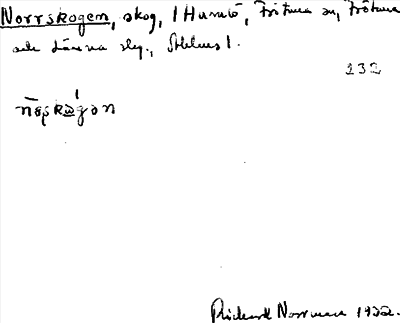 Norrskogen, skog, 1 Hummö, Frötuna sn, Frötuna
och Länna slg., Sthlms l.
232
Richard Norrman 1922.